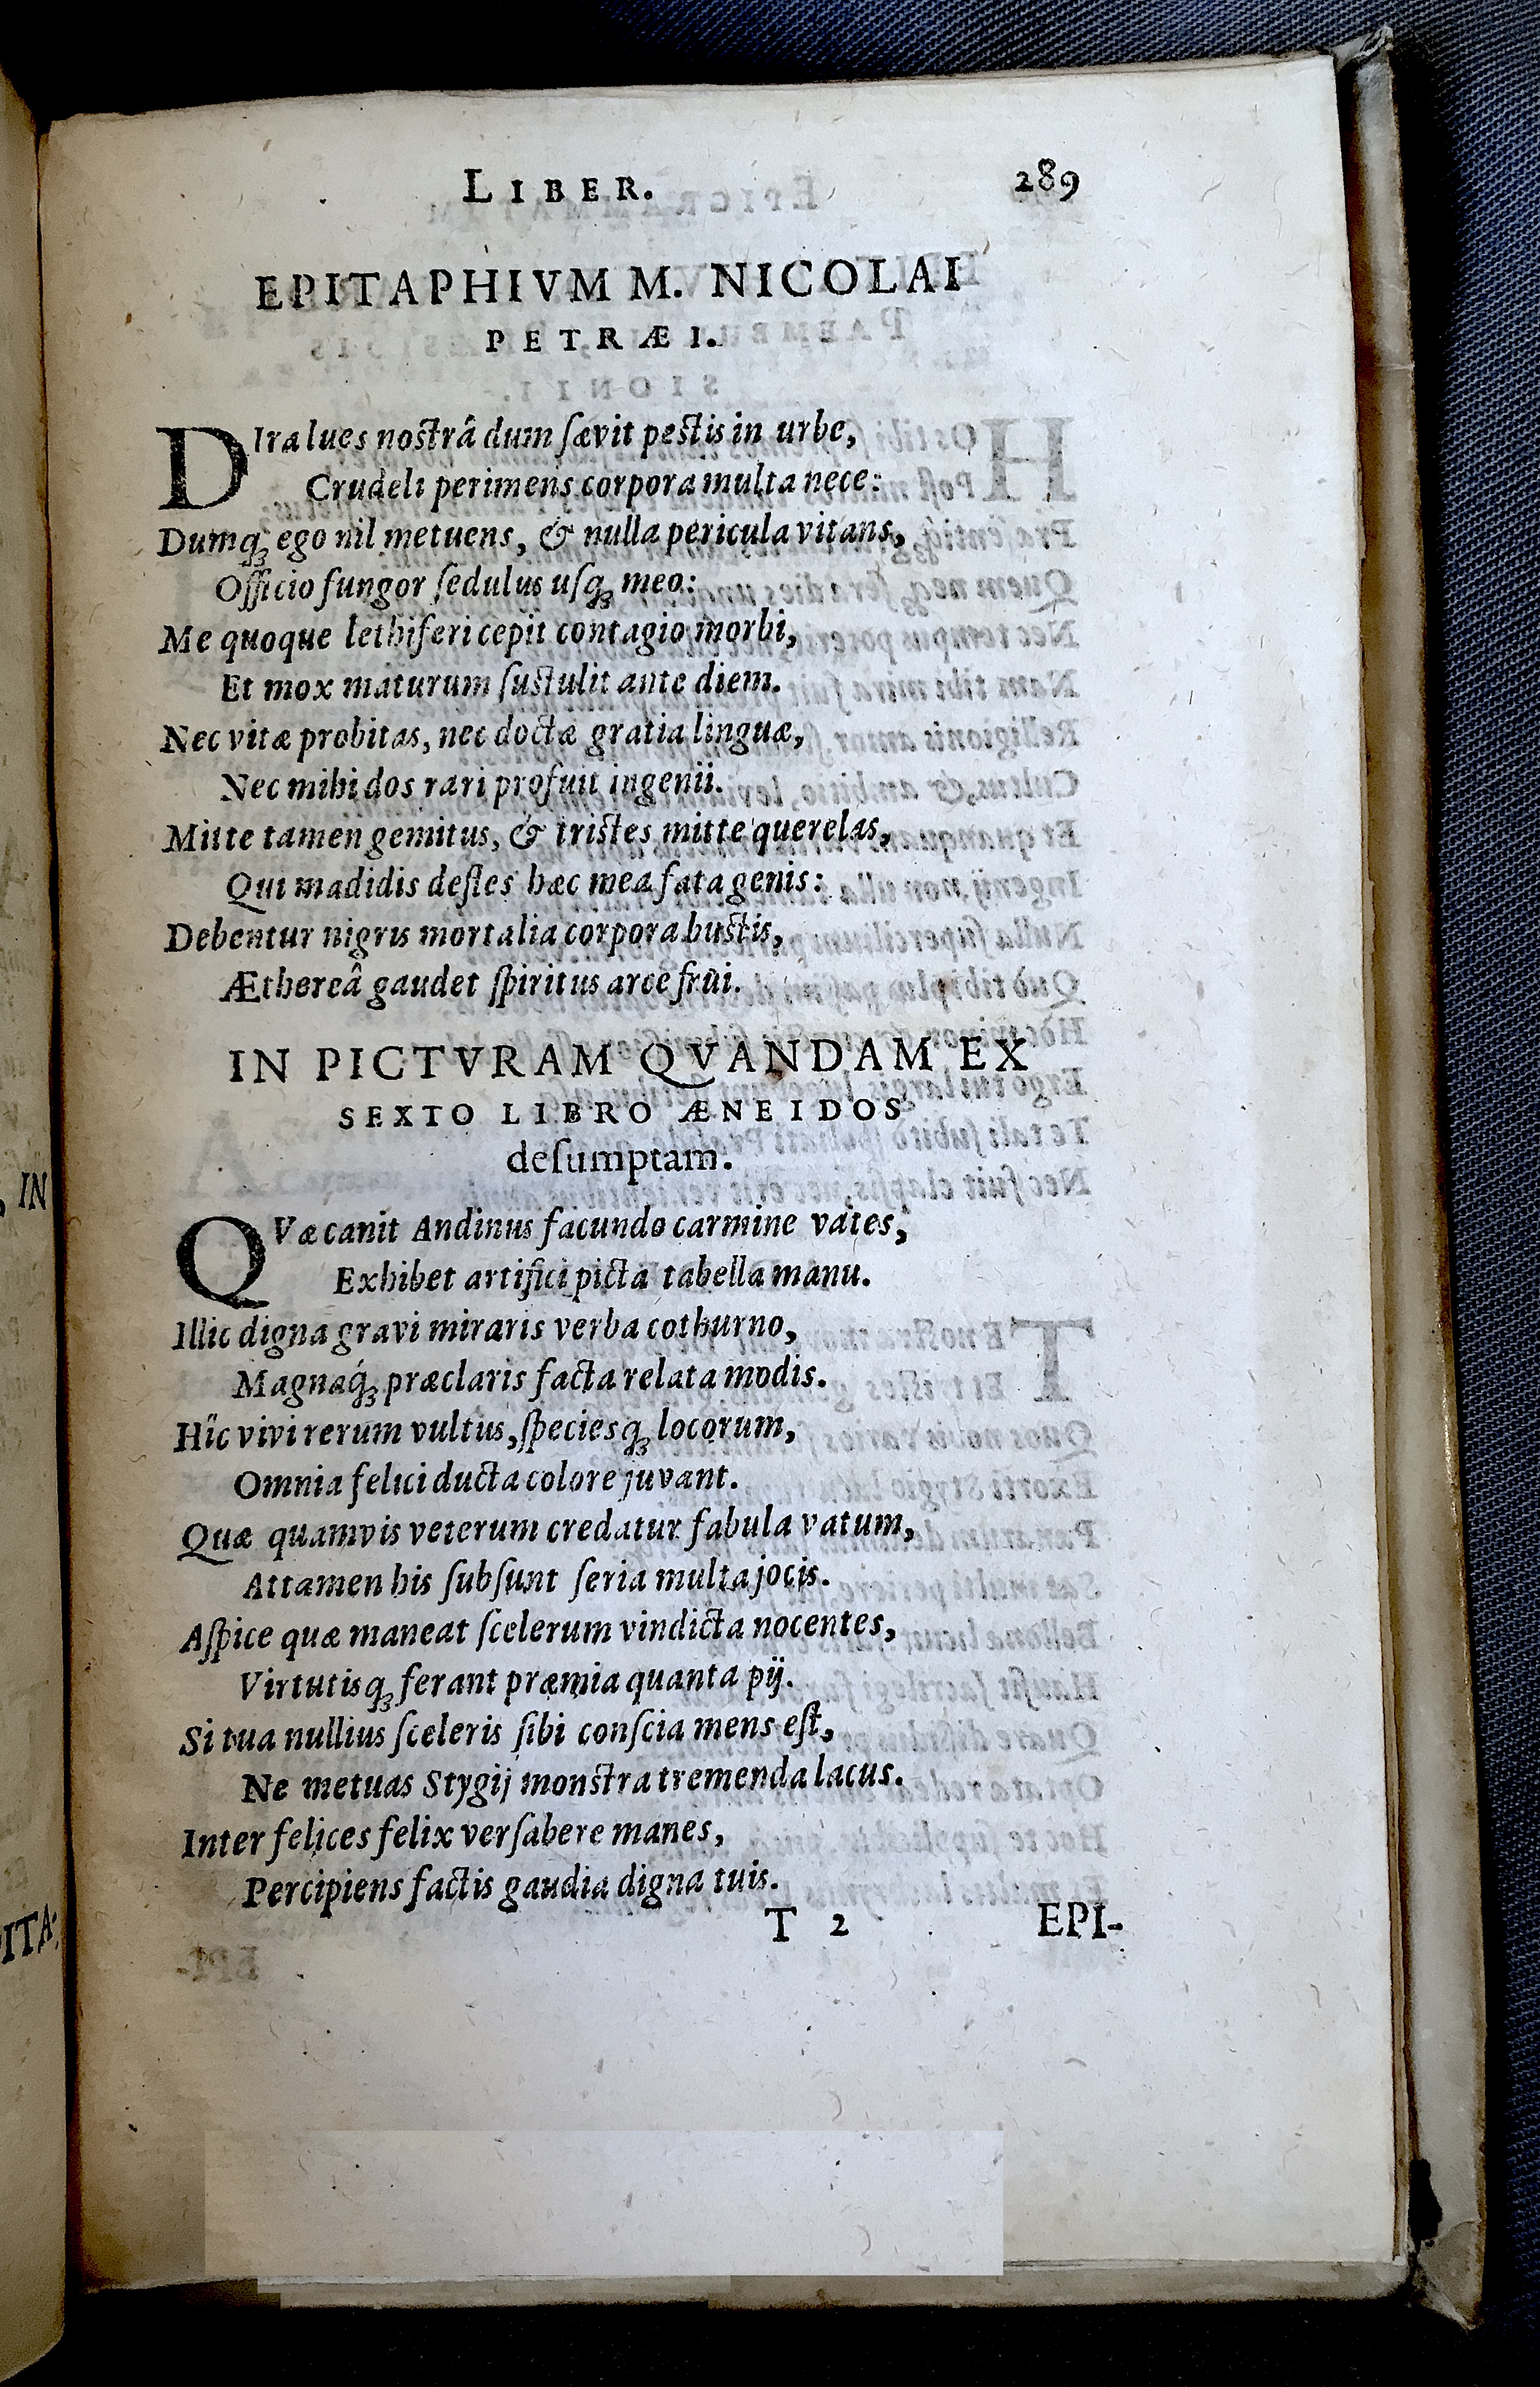 LIBER. 289
EPITAPHIVM M. NICOLAI
PETRÆI.
DIra lues nostrâ dum sævit pestis in urbe,
Crudeli perimens corpora multa nece:
Dumq́ꝫ ego nil metuens, & nulla pericula vitans,
Officio fungor ſedulus uſqꝫ meo:
Me quoque lethiferi cepit contagio morbi,
Et mox maturum ſuſtulit ante diem.
Nec vitæ probitas, nec doctæ gratia linguæ,
Nec mihi dos rari profuit ingenii.
Mitte tamen gemitus, & tristes mitte querelas,
Qui madidis defles hæc mea fata genis:
Debentur nigris mortalia corpora bustis,
Æthereâ gaudet ſpiritus arce frui.
IN PICTVRAM QVANDAM EX
SEXTO LIBRO ÆNEIDOS
deſumptam.
QVæ canit Andinus facundo carmine vates,
Exhibet artifici picta tabella manu.
Illic digna gravi miraris verba cothurno,
Magnaq́ꝫ præclaris facta relata modis.
Hîc vivi rerum vultus, ſpeciesqꝫ locorum,
Omnia felici ducta colore juvant.
Quæ quamvis veterum credatur fabula vatum,
Attamen his ſubſunt ſeria multa jocis.
Aſpice quæ maneat ſcelerum vindicta nocentes,
Virtutisqꝫ ferant præmia quanta pij.
Si tua nullius ſceleris ſibi conſcia mens eſt,
Ne metuas Stygij monstra tremenda lacus.
Inter felices felix verſabere manes,
Percipiens factis gaudia digna tuis.
T 2 EPI-
IN